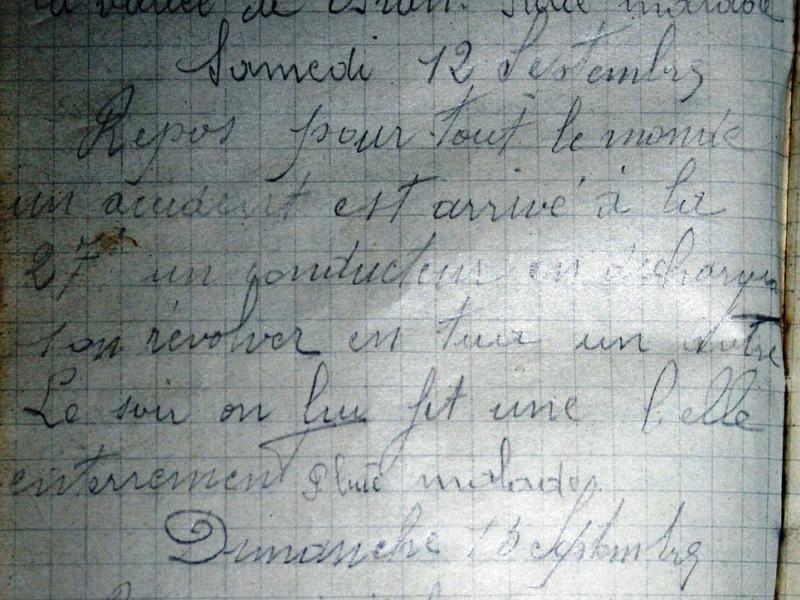 la vallée de
Samedi 12 Septembre
Repos pour tout le monde
un accident est arrivé à la
27e un conducteur en déchargea
son révolver en tua un autre
Le soir on lui fit une belle
enterrement Pluie malade
Dimanche 13 Septembre